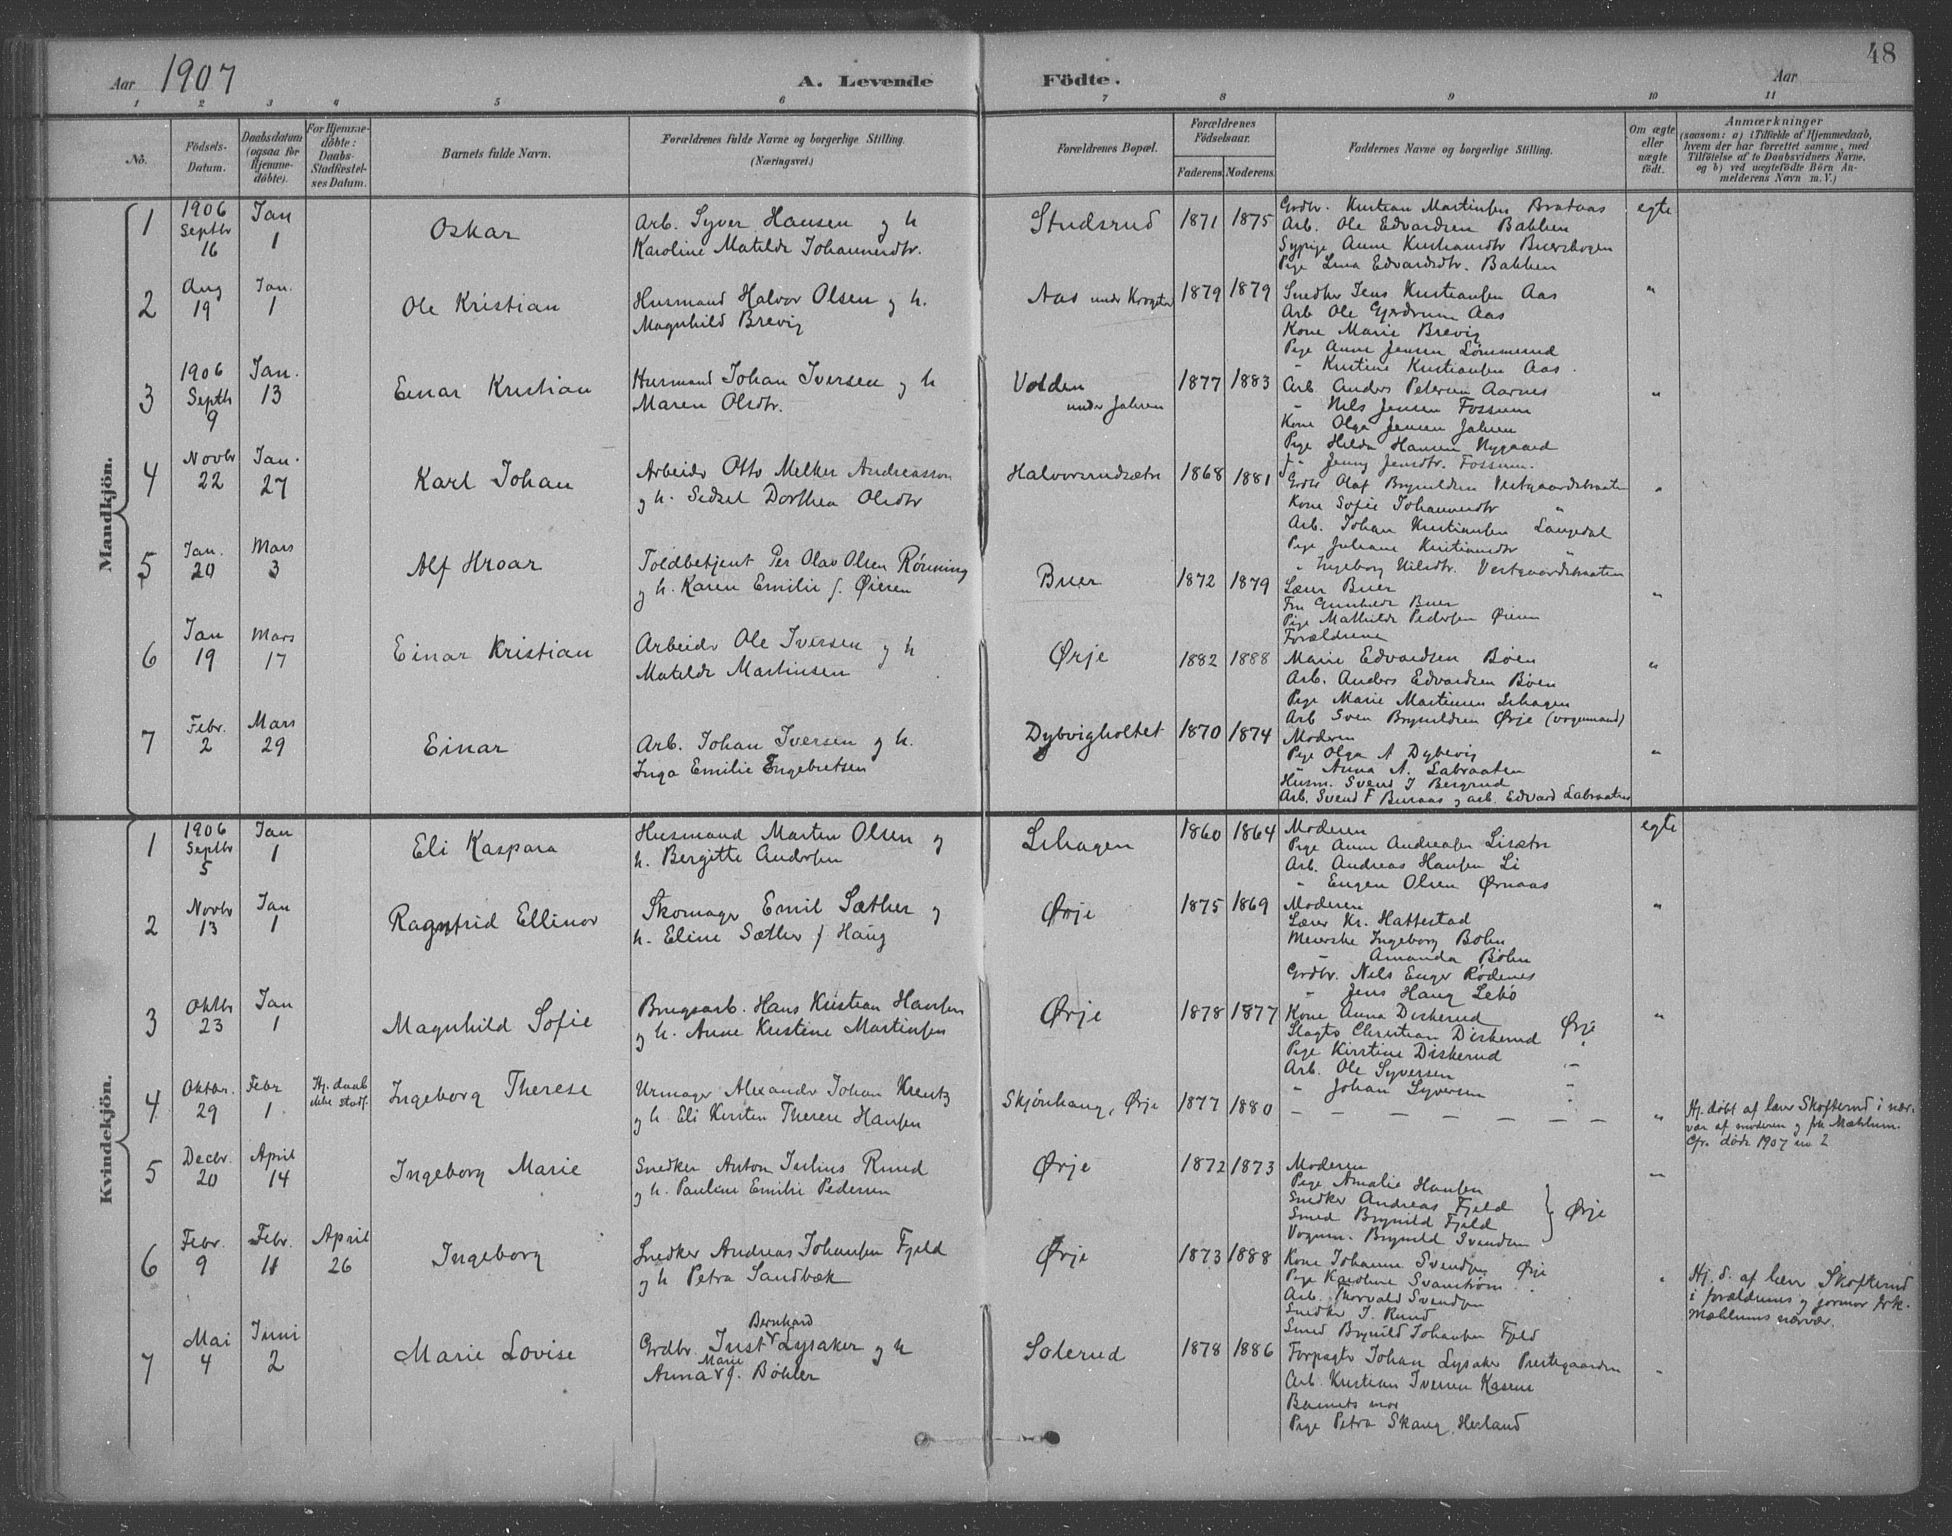 48
Aar 1907 A. Levende Födte. Aar
1 2 3 4 5 6 7 8 9 10 11
No.
Födsels-Datum.
Daabsdatum (ogsaa for Hjemme-döbte).
For Hjemme-döbte: Daabs-Stadfæstel-ses Datum.
Barnets fulde Navn.
Forældrenes fulde Navne og borgerlige Stilling.
(Næringsvei.)
Forældrenes Bopæl.
Forældrenes Födselsaar.
Faderens. Moderens.
Faddernes Navne og borgerlige Stilling.
Om ægte eller uægte födt.
Anmærkninger
(saasom: a) i Tilfælde af Hjemmedaab,
hvem der har forrettet samme, med
Tilföielse af to Daabsvidners Navne,
og b) ved uægtefödte Börn An-
melderens Navn m. V.)
Mandkjön.
1 1906 Septbr 16 Jan 1 Oskar
Arb. Syver Hansen og h
Karoline Matilde Johannesdtr.
Studsrud 1871 1875
Grdbr. Kristian Martinsen Brataas
Arb. Ole Edvardsen Bakken
Sypige Anne Kristiansdtr Buershogen
Pige Lina Edvardsdtr. Bakken
egte
2 Aug 19 Jan. 1 Ole Kristian
Husmand Halvor Olsen og h.
Magnhild Brevig
Aas under Krogstad 1879 1879
Snedker Jens Kristiansen Aas
Arb Ole Gjerdrum Aas
Kone Marie Brevig
Pige Anne Jensen Lømmerud
" Kristine Kristiansen Aas.
"
3 1906 Septbr 9 Jan. 13 Einar Kristian
Husmand Johan Iversen og h
Maren Olsdtr.
Volden under Jahren 1877 1883
Arb. Anders Petersen Aarnes
" Nils Jensen Fossum
Kone Olga Jensen Jahren
Pige Hilda Hansen Nygaard
" Jenny Jensdtr. Fossum.
"
4 Novbr 22 Jan. 27 Karl Johan
Arbeider Otto Melker Andreasson
og h. Sedsel Dorthea Olsdtr
Halvorsrudsætr 1868 1881
Grdbr Olaf Brynildsen Vestgaardsbraaten
Kone Sofie Johannesdtr "
Arb. Johan Kristiansen Langedal
Pige Juliane Kristiansdtr "
" Ingeborg Nilsdtr. Vestgaardsbraaten
"
5 Jan. 20 Mars 3 Alf Hroar
Toldbetjent Per Olav Olsen Rønning
og h. Karen Emilie f. Øieren
Buer 1872 1879
Lærer Buer
Fru Gunhilde Buer
Pige Mathilde Pedersen Øieren
Forældrene
"
6 Jan 19 Mars 17 Einar Kristian
Arbeider Ole Iversen og h
Matilde Martinsen
Ørje 1882 1888
Marie Edvardsen Bøen
Arb. Anders Edvardsen Bøen
Pige Marie Martinsen Lihagen
Arb Sven Brynildsen Ørje (vognmand)
"
7 Febr. 2 Mars 29 Einar
Arb. Johan Iversen og h.
Inga Emilie Engebretsen
Dybvigholtet 1870 1874
Moderen
Pige Olga A Dybevig
" Anna A. Labraaten
Husm. Svend J Bergerud
Arb. Svend F Buraas og arb. Edvard Labraaten
"
Kvindekjön.
1 1906 Septbr 5 Jan 1 Eli Kaspara
Husmand Martin Olsen og
h. Bergitte Andersen
Lihagen 1860 1864
Moderen
Pige Anne Andreasen Lisætr
Arb. Andreas Hansen Li
" Eugen Olsen Ørnaas
egte
2 Novbr 13 Jan 1 Ragnfrid Ellinor
Skomager Emil Sæther og
h. Eline Sæther f Haug
Ørje 1875 1869
Moderen
Lærer Kr. Hattestad
Meierske Ingeborg Bøhn
" Amanda Bøhn
Grdbr. Nels Enger Rødenes
" Jens Haug Lebø
"
3 Oktbr 23 Jan 1 Magnhild Sofie
Brugsarb. Hans Kristian Hansen
og h. Anne Kristine Martinsen
Ørje 1878 1877
Kone Anna Diskerud
Slagter Christian Diskerud Ørje
Pige Kirstine Diskerud "
Arb. Ole Syversen "
" Johan Syversen "
"
4 Oktbr. 29 Febr 1 Hj. daab ikke stadf. Ingeborg Therese
Urmager Alexander Johan Krentz
og h. Eli Kirsten Therese Hansen
Skjønhaug, Ørje 1877 1880
— — — — — — —
"
Hj. døbt af lærer Skofterud i nær-
vær af moderen og frk Mæhlum.
Cfr. døde 1907 no 2
5 Decbr. 20 April 14 Ingeborg Marie
Snedker Anton Julius Ruud
og h. Pauline Emilie Pedersen
Ørje 1872 1873
Moderen
Pige Amalie Hansen
Snedker Andreas Fjeld
Smed Brynild Fjeld
Vognm. Brynild Svendsen
Ørje
"
6 Febr. 9 Febr. 11 April 26 Ingeborg
Snedker Andreas Johansen Fjeld
og h Petra Sandbæk
Ørje 1873 1888
Kone Johanne Svendsen Ørje
Pige Karoline Svanstrøm "
Arb. Thorvald Svendsen
Snedker J. Ruud
Smed Brynild Johansen Fjeld
"
Hj. d. af lærer Skofterud
i forældrenes og jormor frk.
Mæhlums nærvær.
7 Mai 4 Juni 2 Marie Lovise
Bernhard
Grdbr. Just Lysaker og h
Marie
Anna f. Bøhler
Solerud 1878 1886
Forpagter Johan Lysaker Prestegaarden
Arb. Kristian Iversen Kasene
Barnets mor
Pige Petra Skaug, Herland
"